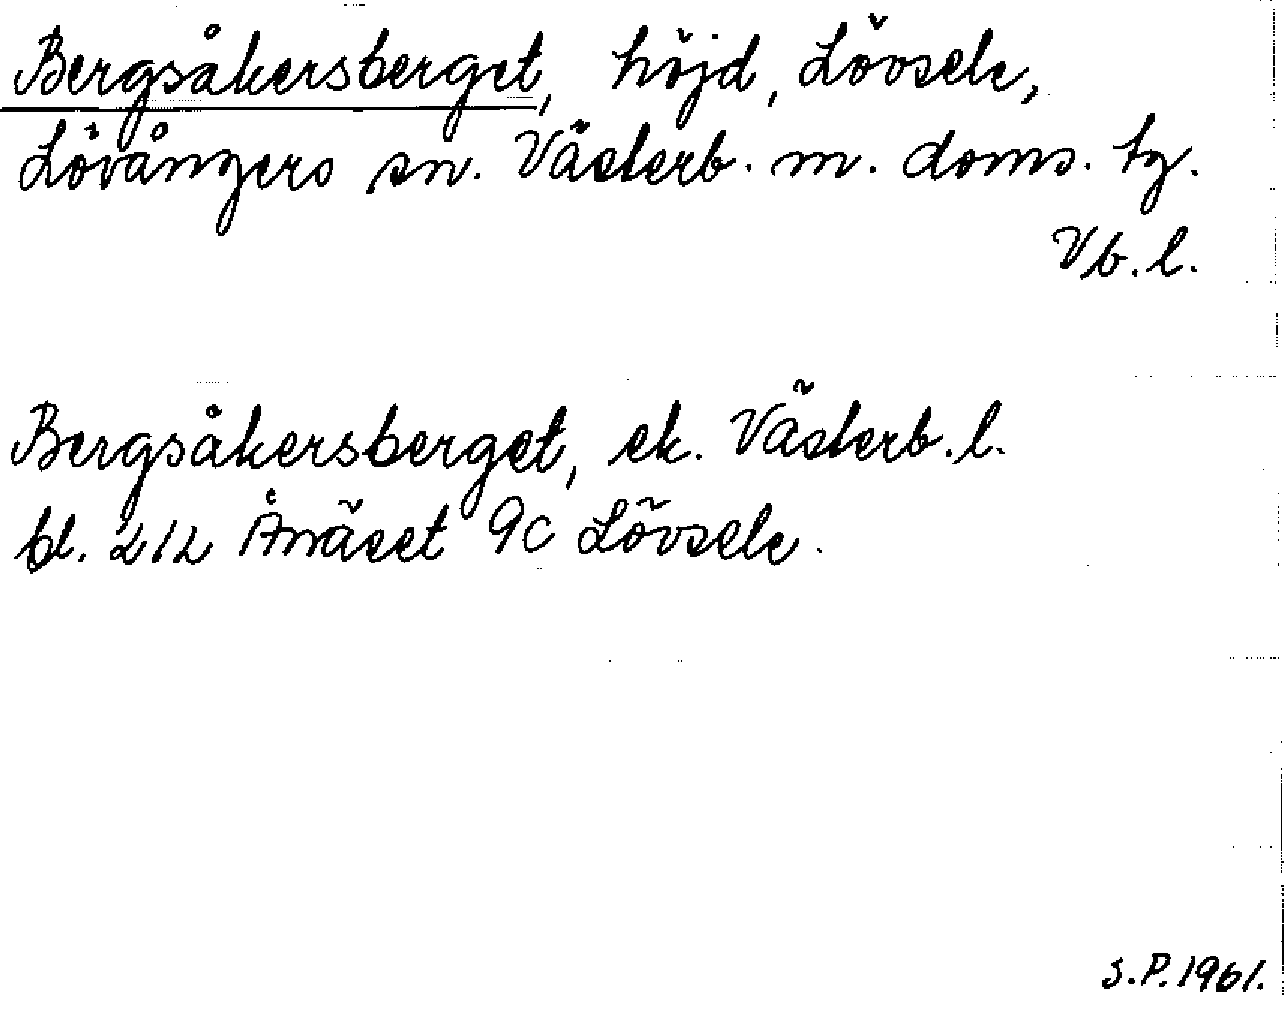 Bergsåkersberget, höjd, Lövsele,
Lövångers sn. Västerb. m. doms. tg.
Vb. l.
Bergsåkersberget, ek. Västerb. l.
bl. 212 Ånäset 9c Lövsele.
S.P. 1961.